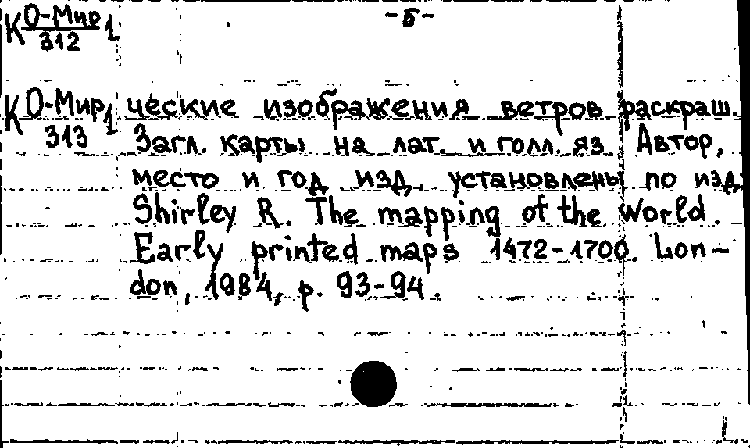 К О-Мир/312 1
-5-
К О-Мир/313 1
ческие изображения ветров раскраш.
Загл. карты на лат. и голл. яз. Автор,
место и год изд. установлены по изд.
Shirley R. The mapping of the World.
Early printed maps 1472-1700. Lon-
don, 1984, p. 93-94.